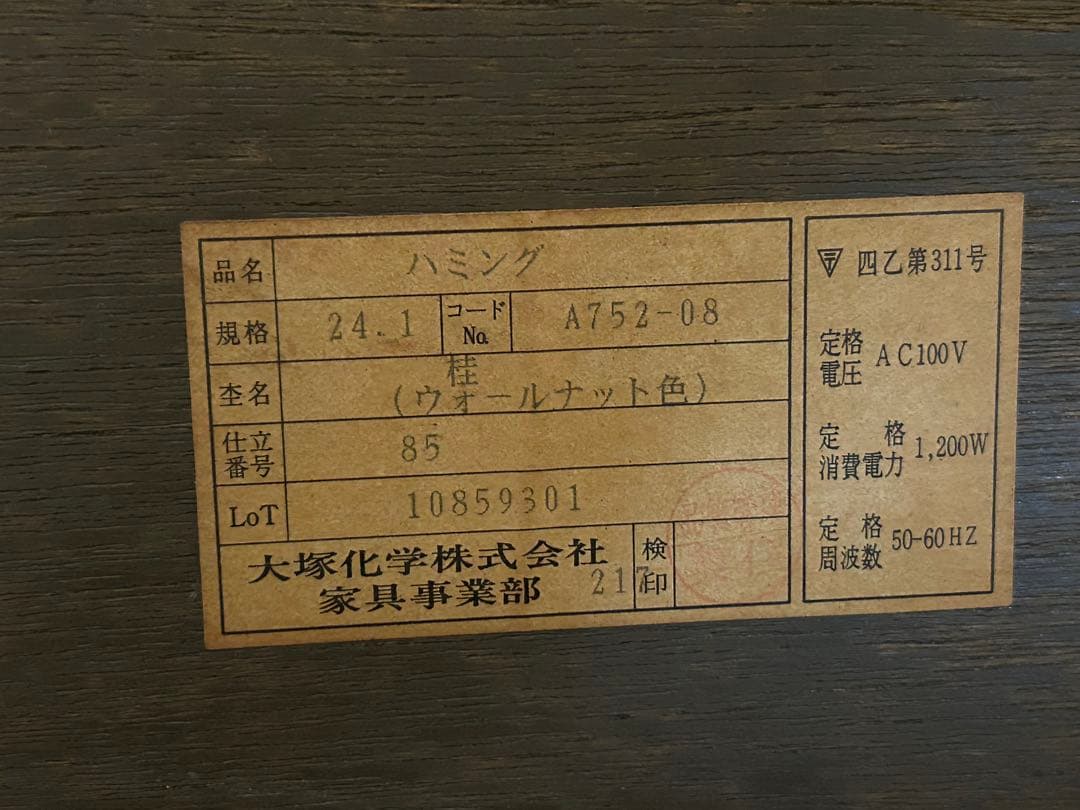 品名 ハミング
規格 24.1 コードNo. A752-08
杢名 桂
(ウォールナット色)
仕立番号 85
LoT 10859301
大塚化学株式会社
家具事業部 217
検印
四乙第311号
定格電圧 AC100V
定格消費電力 1,200W
定格周波数 50-60HZ